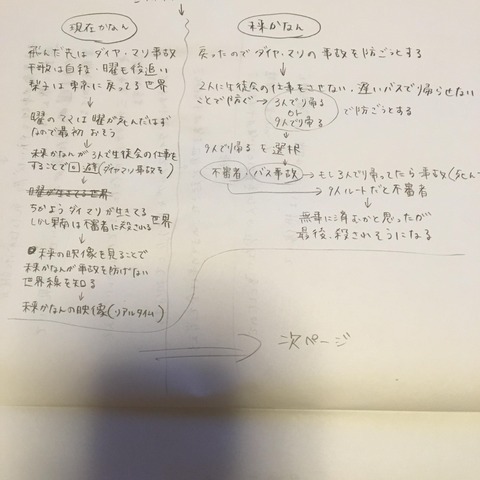 現在かなん
飛んだ先はダイヤ・マリ事故
千歌は自殺・曜も後追い
梨子は東京に戻ってる世界
曜のママは曜が死んだはず
なので最初おそう
未来かなんが3人で生徒会の仕事を
することで回避(ダイヤマリ事故を)
曜が生きてる世界
ちかようダイマリが生きてる世界
しかし果南は不審者に殺される
未来の映像を見ることで
未来かなんが事故を防げない
世界線を知る
未来かなんの映像(リアルタイム)
未来かなん
戻ったのでダイヤ・マリの事故を防ごうとする
2人に生徒会の仕事をさせない、遅いバスで帰らせない
ことで防ぐ→3人で帰る
or
9人で帰る
で防ごうとする
9人で帰るを選択
不審者・バス事故→もし3人で帰ってたら事故(死んで
→9人ルートだと不審者
無事に済むかと思ったが
最後、殺されそうになる
次ページ